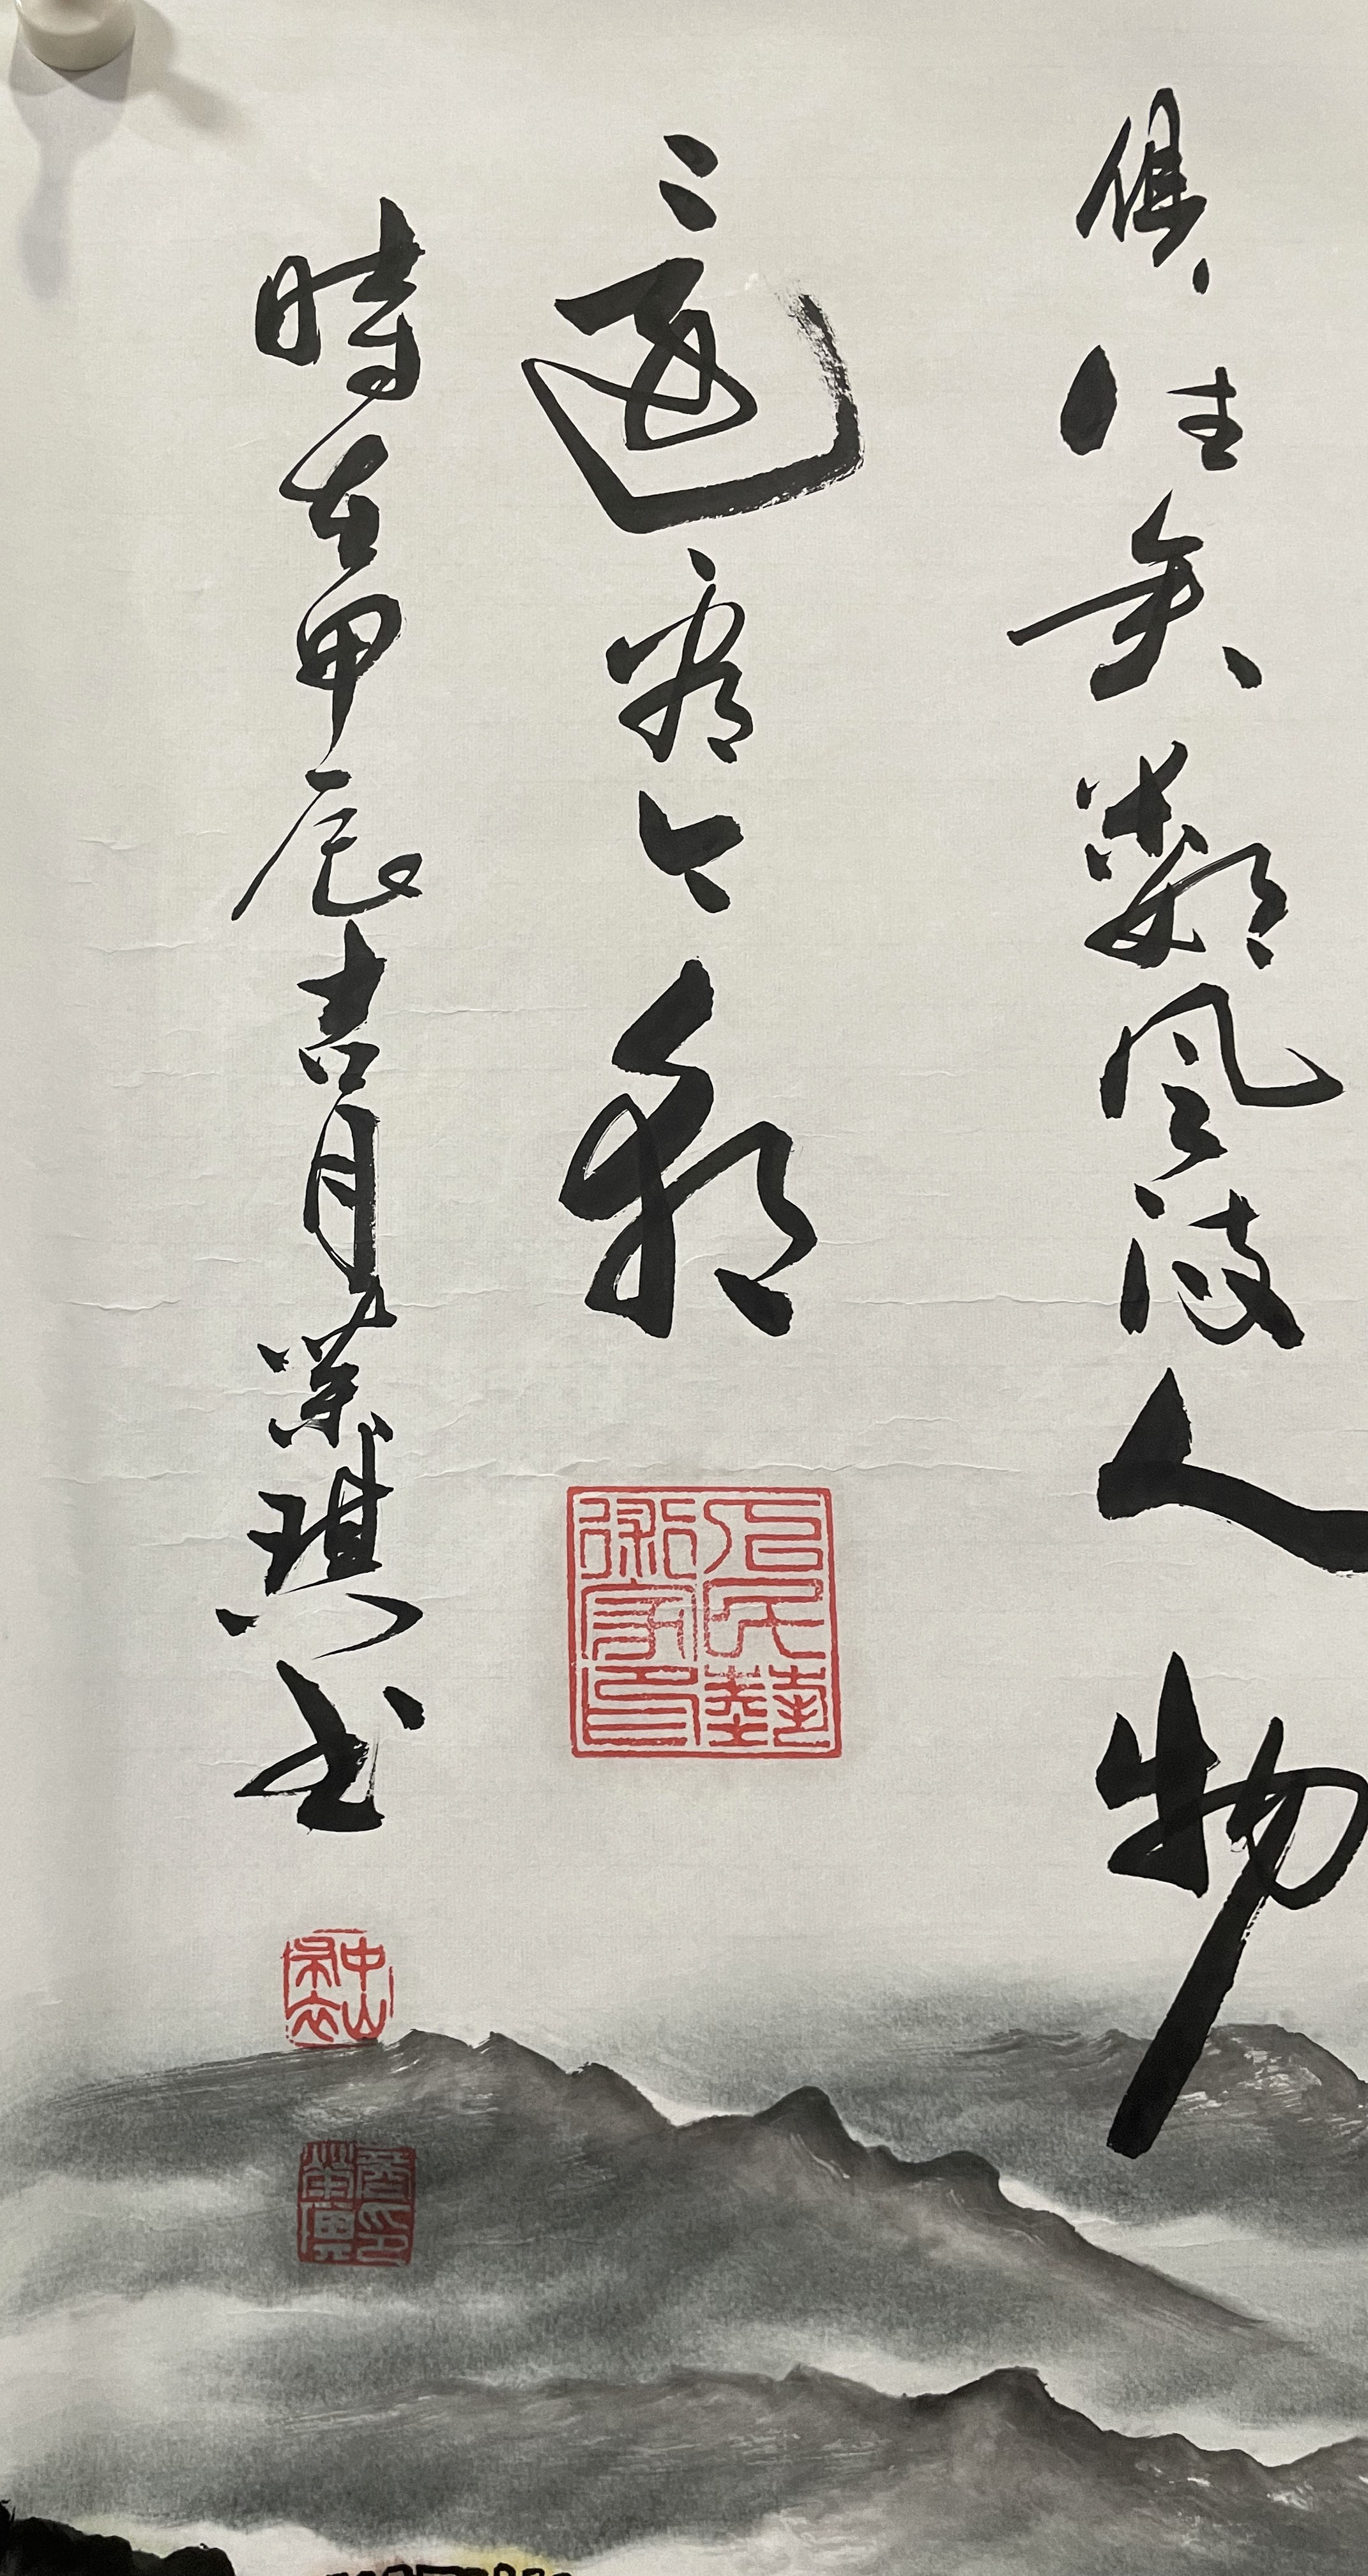 俱往矣數風流人物
還看今朝
時在甲辰吉月業琪書
術家印
中山布衣